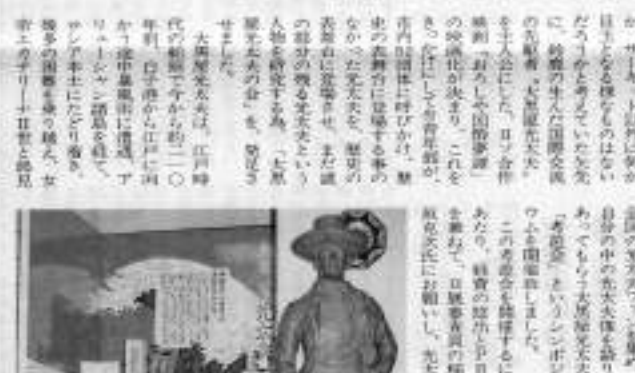 が、サーキット以外に何か
目玉となる様なものはない
だろうかと考えていた矢先
に、鈴鹿の生んだ国際交流
の先駆者「大黒屋光太夫」
を主人公にした、日ソ合作
映画「おろしや国酔夢譚」
の映画化が決まり、これを
きっかけにして当青年部が、
市内92団体に呼びかけ、歴
史の表舞台に登場する事の
なかった光太夫を、歴史の
表舞台に登場させ、まだ謎
の部分の残る光太夫という
人物を研究する為、「大黒
屋光太夫の会」を、発足さ
せました。
大黒屋光太夫は、江戸時
代の船頭で今から約二一〇
年前、白子港から江戸に向
かう途中暴風雨に遭遇、ア
リューシャン諸島を経て、
ロシア本土にたどり着き、
幾多の困難を乗り越え、女
帝エカテリーナⅡ世と謁見
自分の中の光太夫像を語り
あってもらう大黒屋光太夫
「考遊会」というシンポジ
ウムを開催しました。
この考遊会を開催するに
あたり、経費の捻出とPR
を兼ねて、日展審査員の
克次氏にお願いし、光太